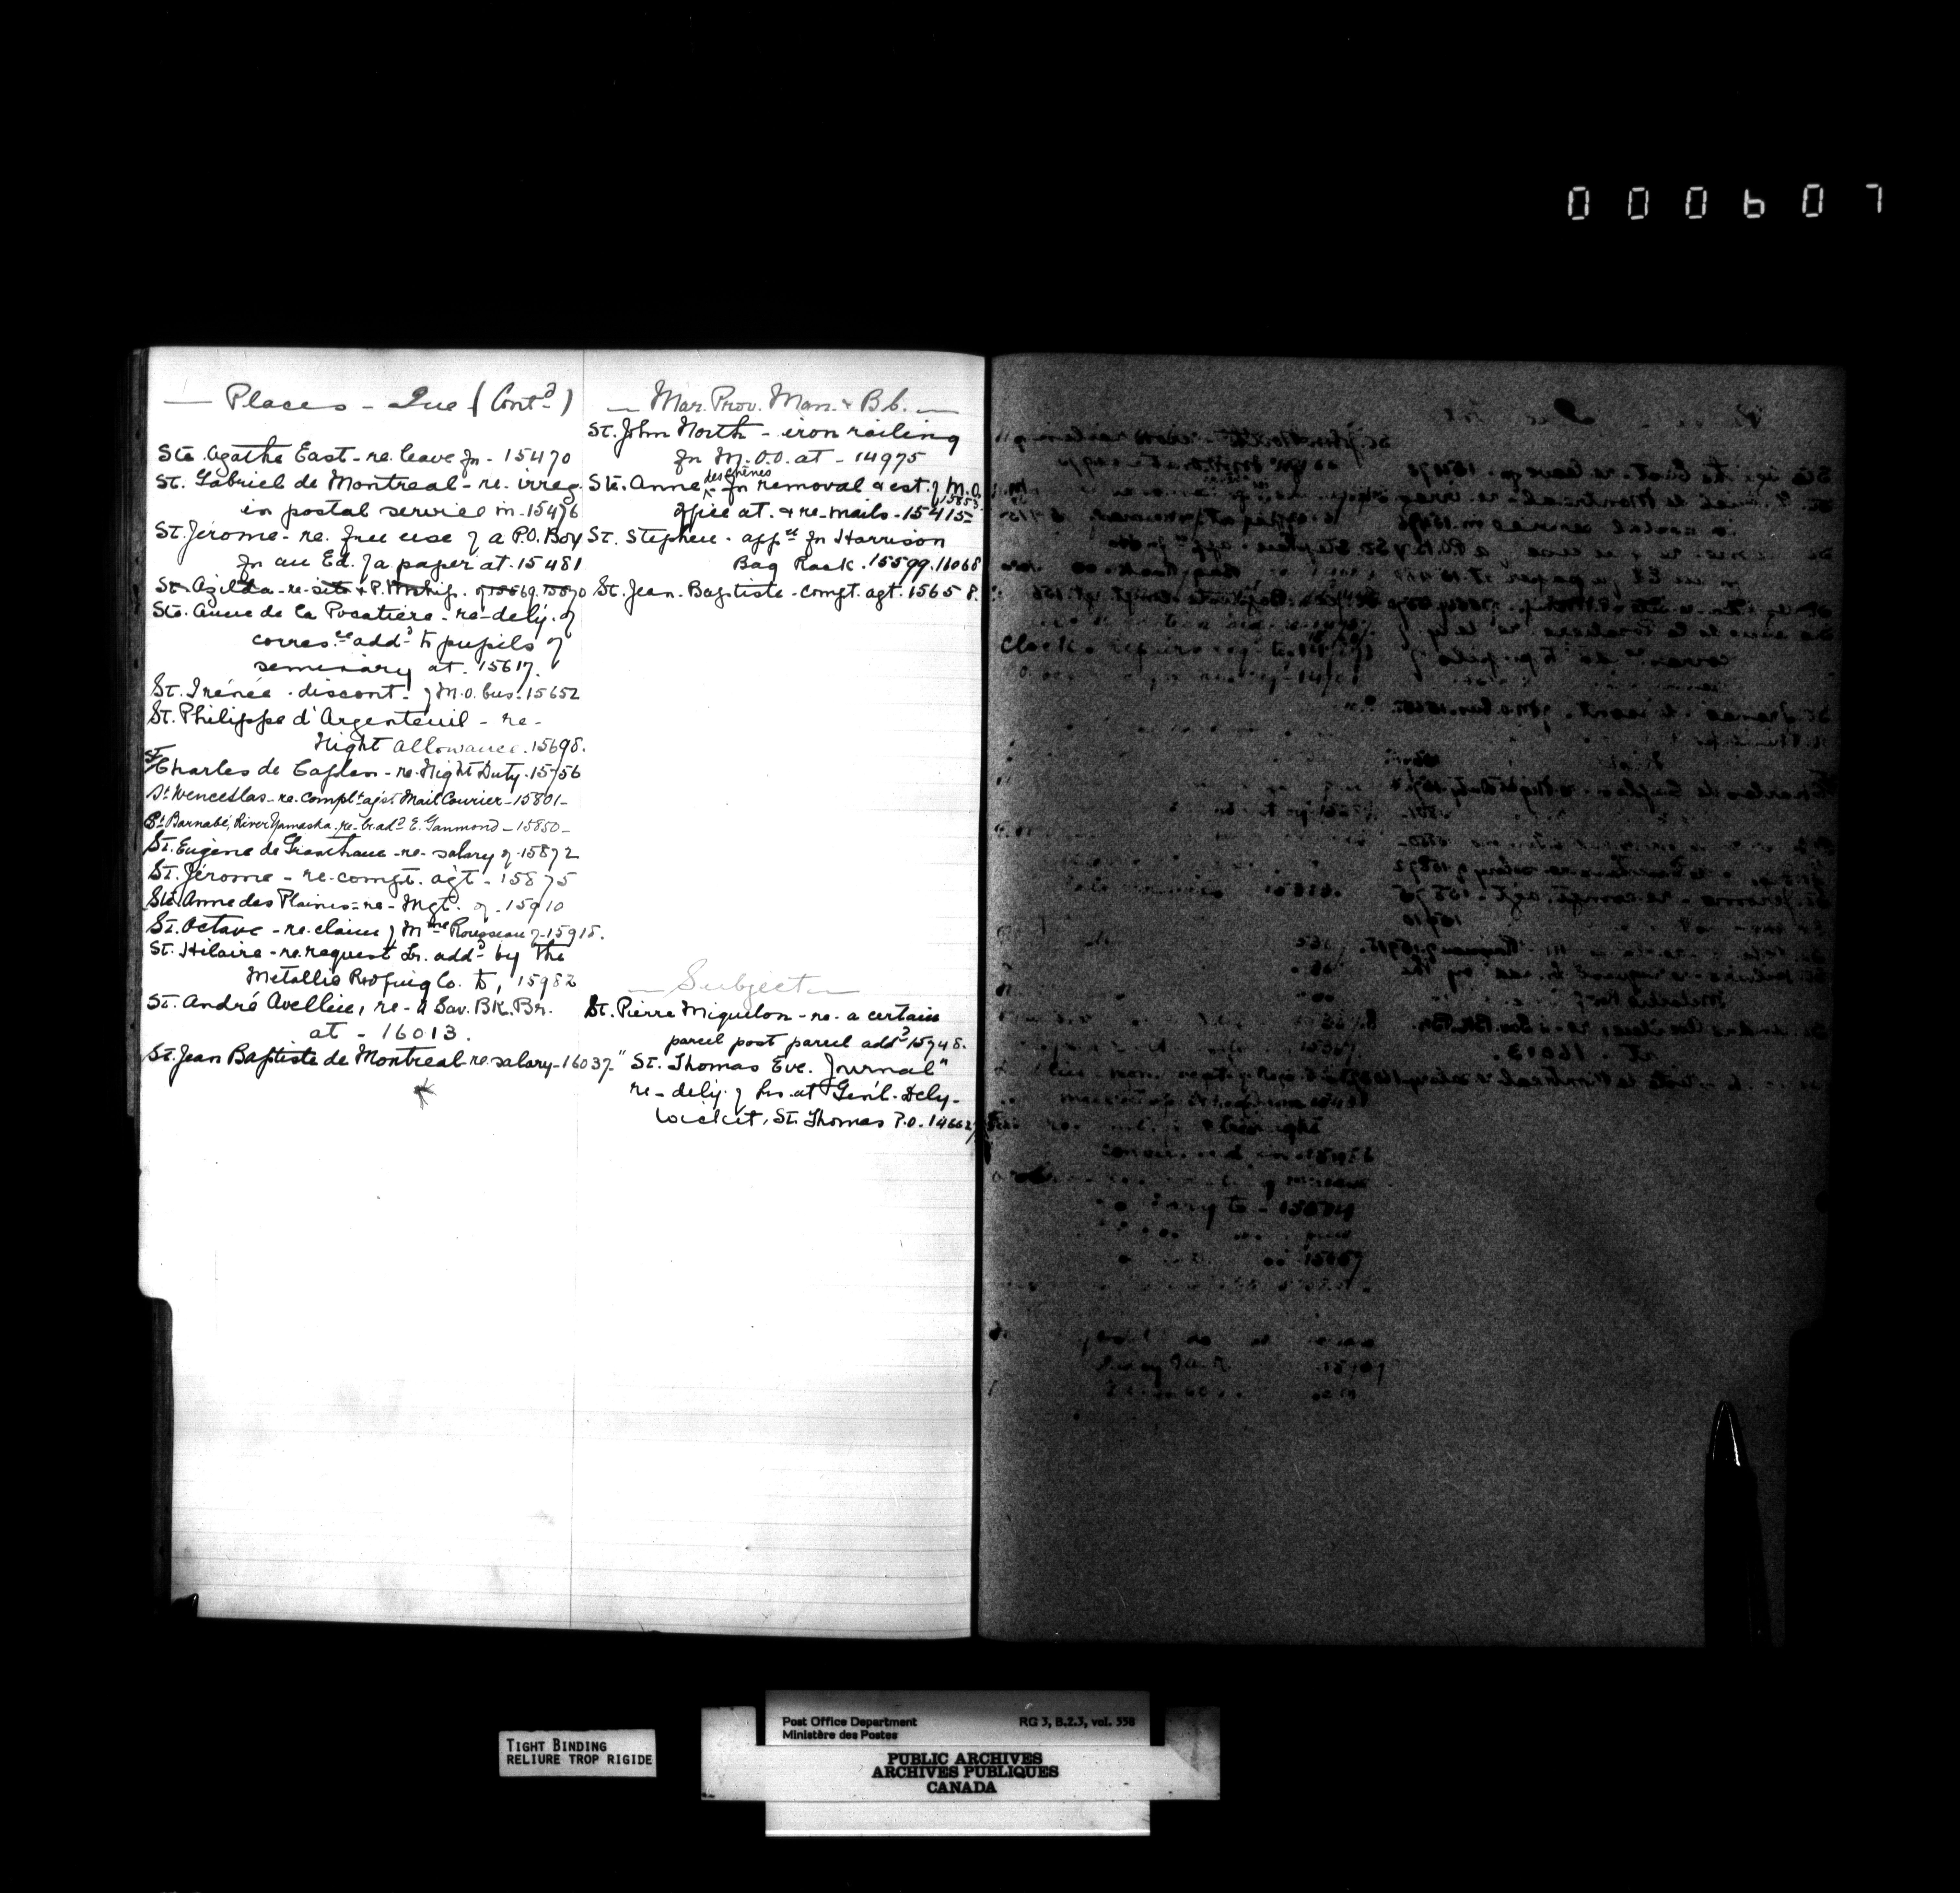 000607
— Places - Que (Contd)
Ste. Agathe East - re. leave for - 15470
St. Gabriel de Montreal - re. irreg.
in postal service in - 15476
St. Jérome - re. free use of a P.O. Box
for an Ed. of a paper at. 15481
St. Azilda - re - site & P. Mstship. of 15569.
Ste. Anne de la Pocatiere - re - dely. of
corresce addd to pupils of
seminary at. 15617.
St. Irénée - discont. of M.O. bus. 15652
St. Philippe d'Argenteuil - re -
Night allowance. 15698.
St. Charles de Caplan - re. Night Duty. 15756
St Wenceslas - re. complt agst Mail Courier - 15801 -
St Barnabé, River Yamaska. re - addd E. - 15850 -
St. Eugène de Grantham - re - salary of. 15872
St. Jérome - re - compt. agt - 15875
Ste. Anne des Plaines = re - Mgt. of - 15910
St. Octave - re. claim of Mme Rousseau of - 15915.
St. Hilaire - re. request Lr. addd by the
Metallic Roofing Co. to, 15982
St. André Avellin, re - a Sav. BK. Br.
at - 16013.
St. Jean Baptiste de Montreal - re. salary - 16037.
— Mar. Prov. Man. & B.C. —
St. John North - iron railing
for M.O.O. at - 14975
Ste. Anne des Chênes - for removal & est. of M.O.
15853.
office at. & re - mails - 15415
St. Stephen - appn for Harrison
Bag Rack. 15599. 16068
St. Jean - Baptiste - compt. agt. 15658.
— Subject —
St. Pierre Miquelon - re. a certain
parcel post parcel addd 15948.
"St. Thomas Eve. Journal"
re - dely. of Lrs. at Genl. Dely.
Wicket, St. Thomas P.O. 14662
TIGHT BINDING
RELIURE TROP RIGIDE
Post Office Department RG 3, B.2.3, vol. 558
Ministère des Postes
PUBLIC ARCHIVES
ARCHIVES PUBLIQUES
CANADA